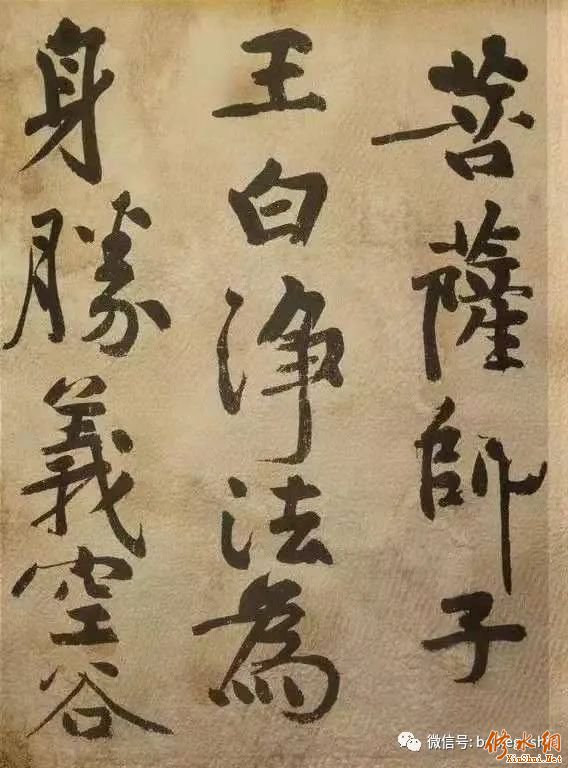 菩薩師子
王白浄法為
身勝義空谷
微信号:
修水網
XinShui.Net